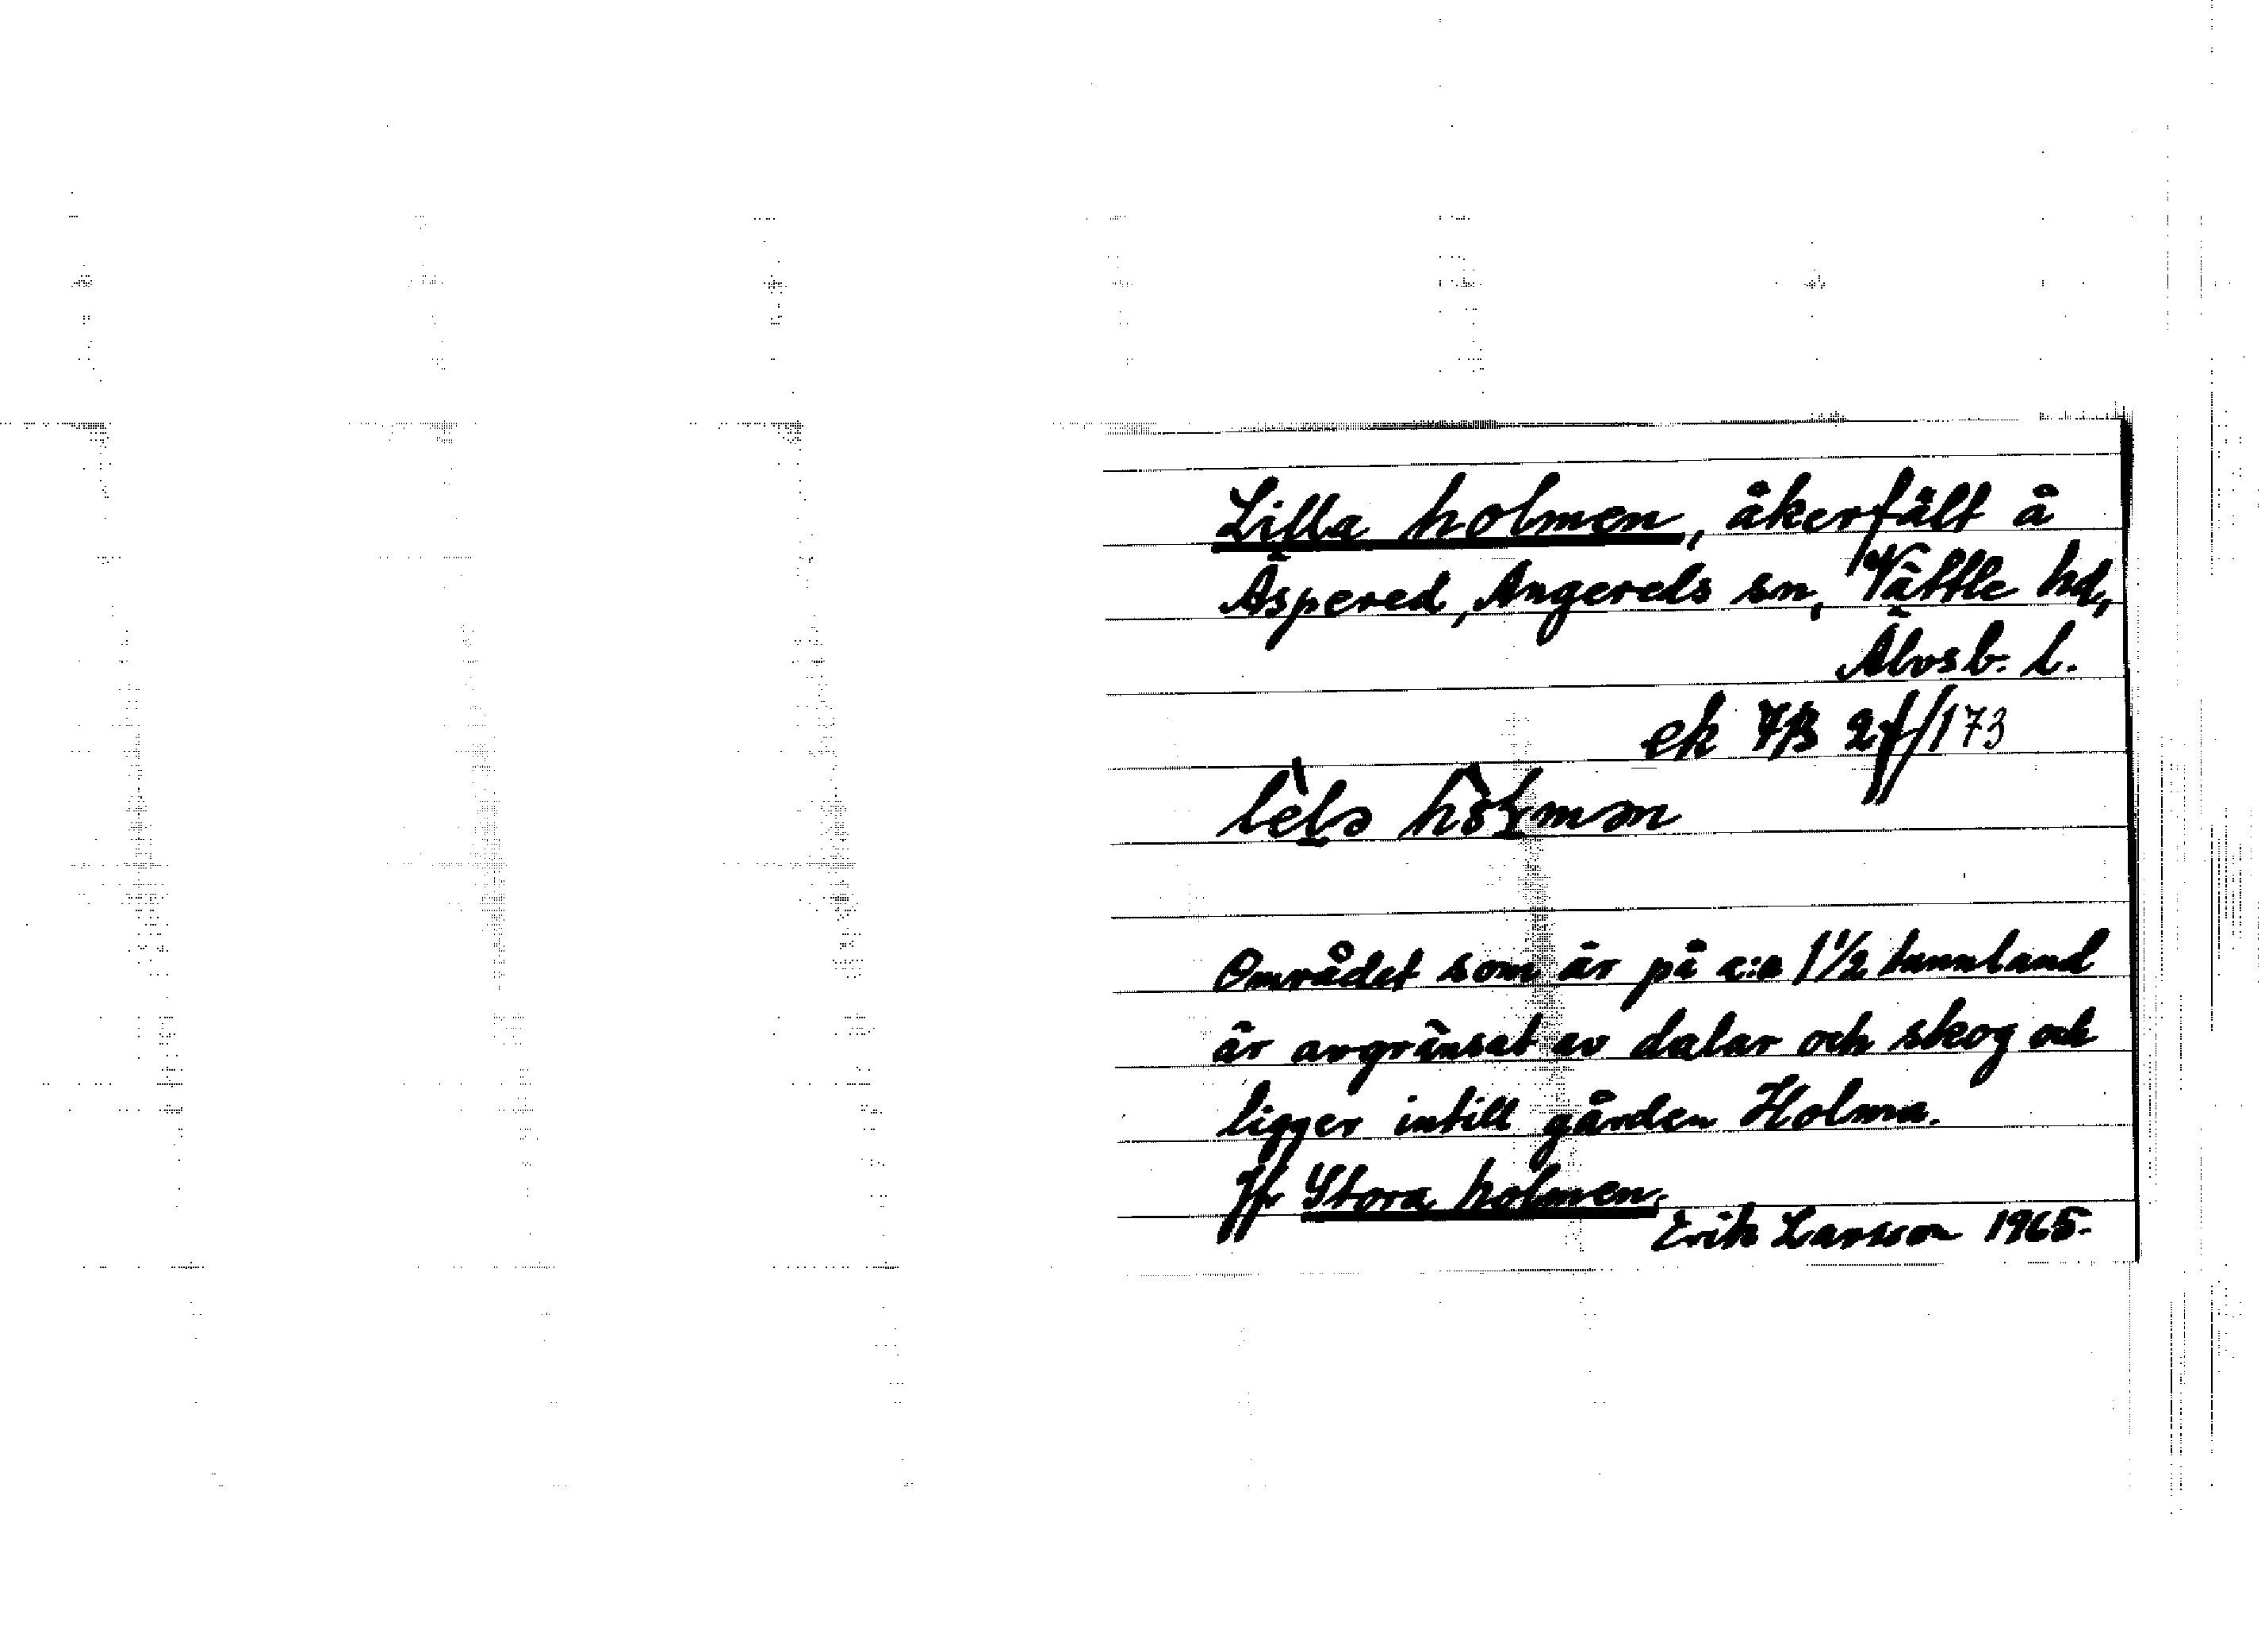 Lilla holmen, åkerfält å
Äspered, Angereds sn, Vättle hd,
Älvsb. l.
ek 7B 2f/173
Området som är på c:a 1 1/2 tunnland
är avgränsat av dalar och skog och
ligger intill gården Holma.
Jfr Stora holmen.
Erik Larsson 1965.